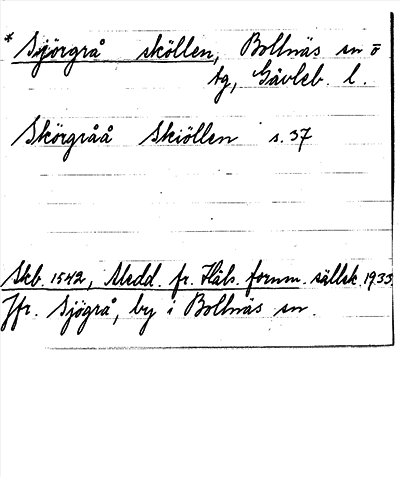 * Sjörgrå sköllen, Bollnäs sn o
tg, Gävleb. l.
Skörgråå Skiöllen s. 37
Skb. 1542, Medd. fr. Häls. fornm. sällsk. 1935
Jfr. Sjögrå, by i Bollnäs sn.